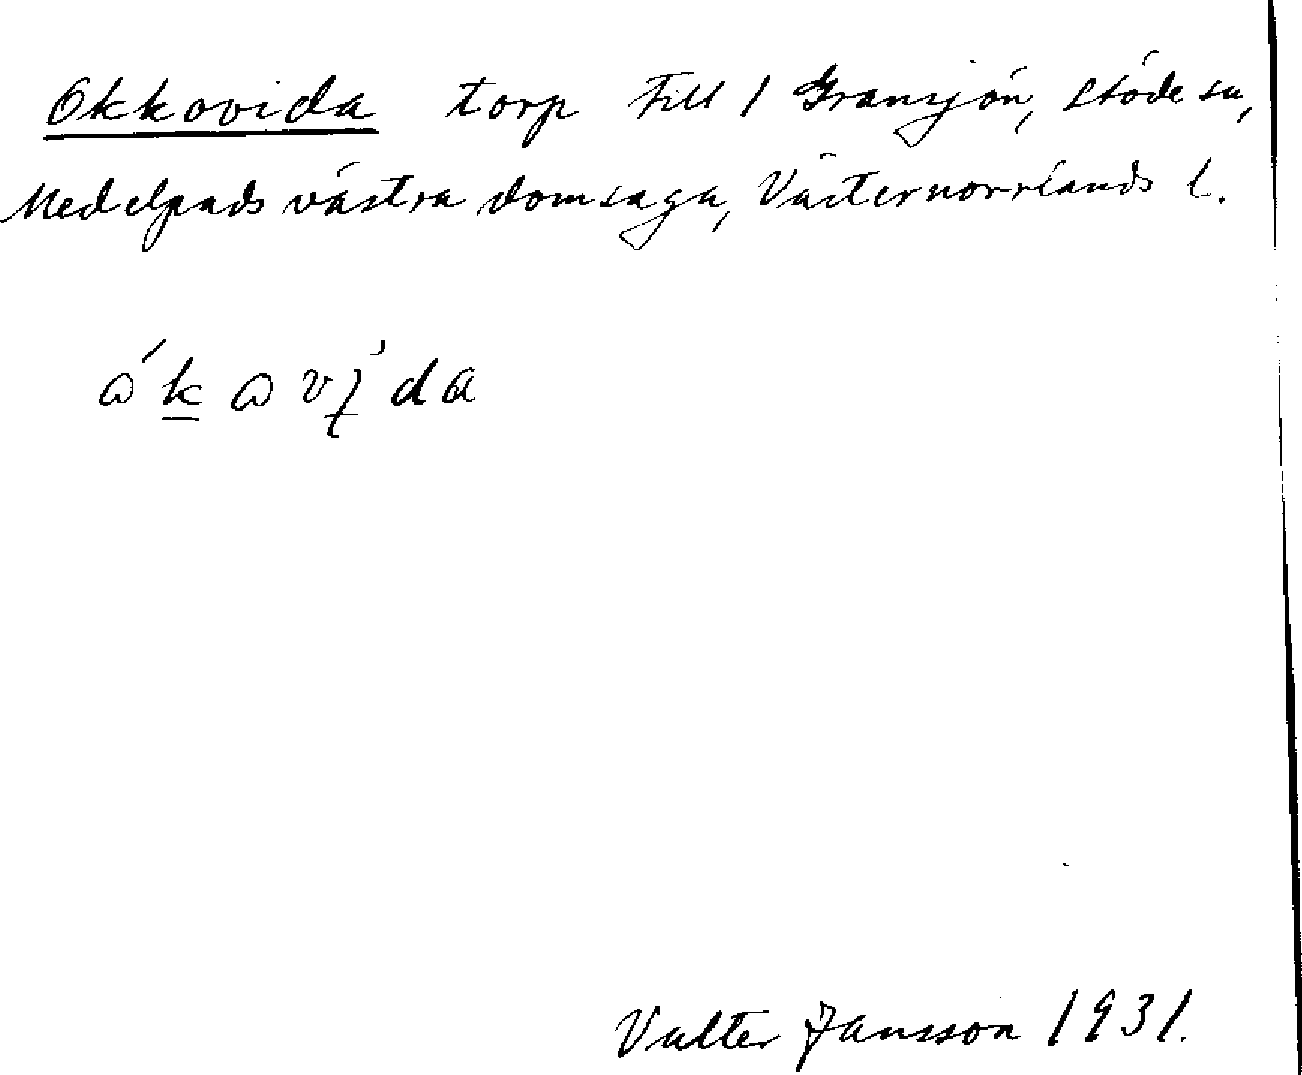 Okkovida torp till 1 Gransjön, Stöde sn,
Medelpads västra domsaga, Västernorrlands l.
Valter Jansson 1931.